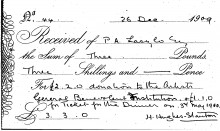 No. 44. 26 Dec. 1909
Received of P A Laszlo Esq
the Sum of Three Pounds
Three Shillings and — Pence
For £2.2.0 donation to the Artists
General Benevolent Institution, &
for Ticket for the Dinner on 3rd May 1900
£ 3.3.0 H. Hughes-Stanton